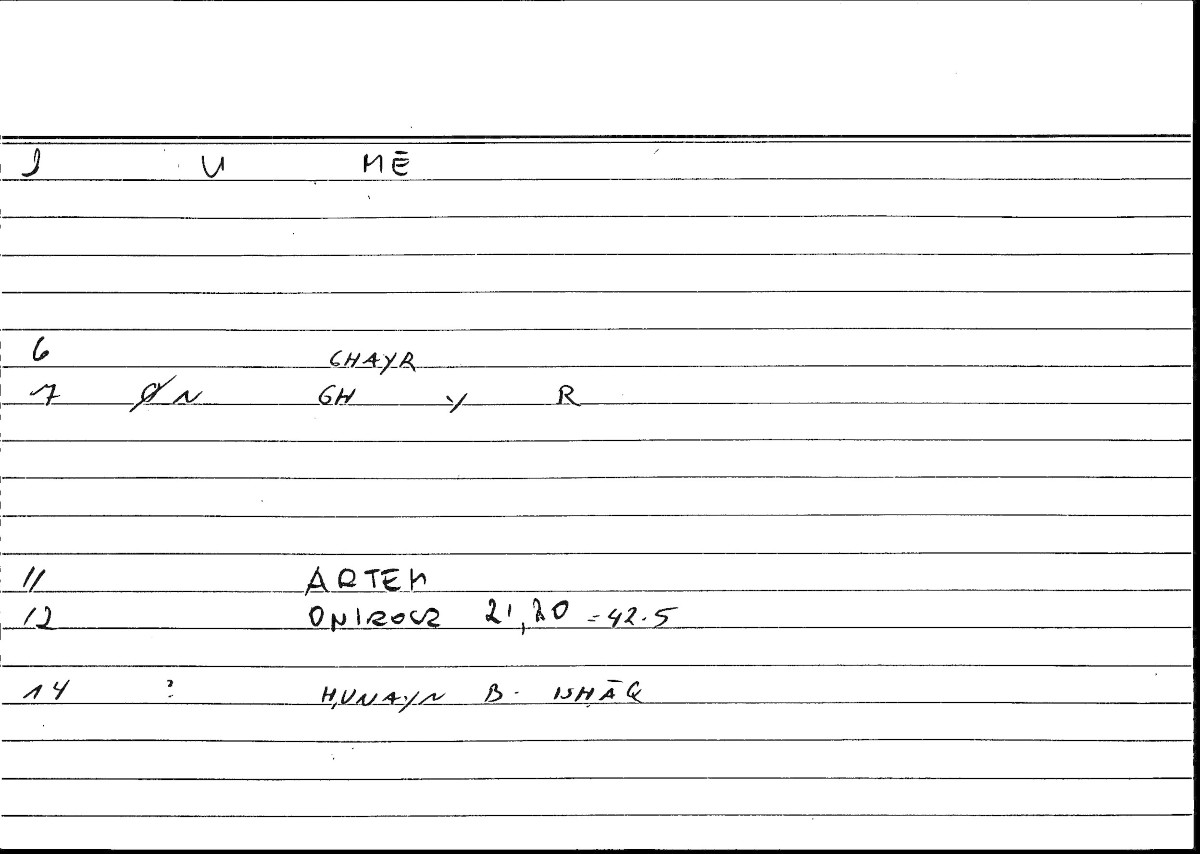 1 U MĒ
6 GHAYR
7 Ø N GH Y R
11 ARTEM
12 ONIROCR 21,20 = 42.5
14 ? ḤUNAYN B. ISḤĀQ